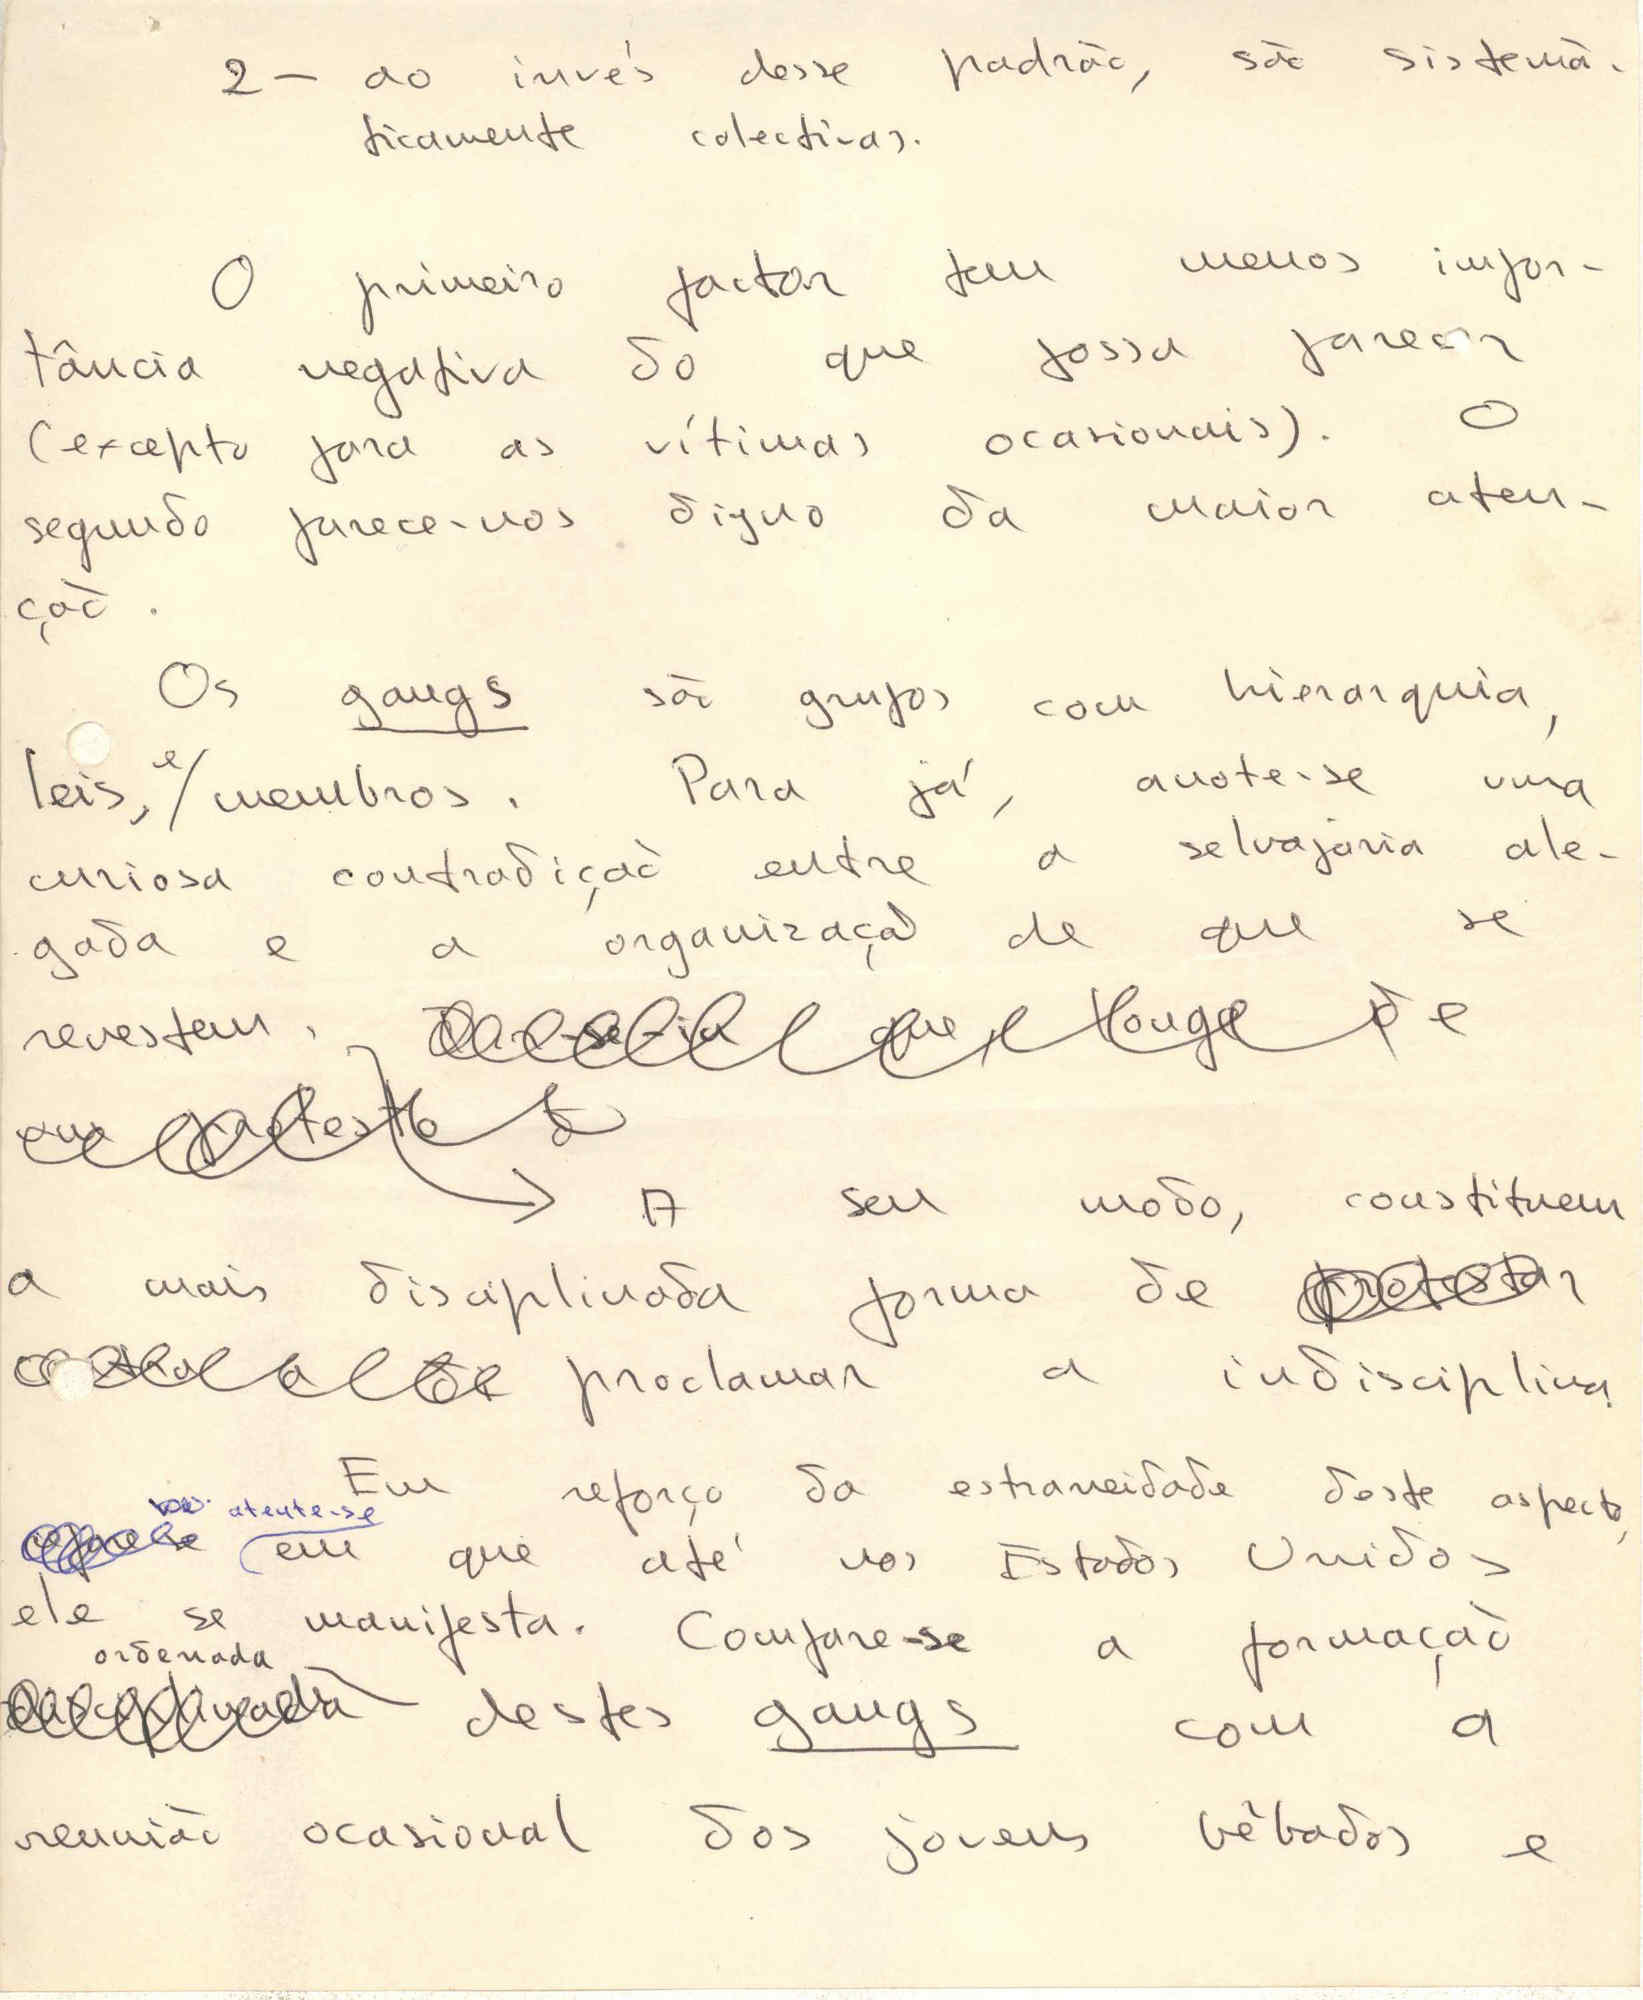 2 - ao invés desse padrão, são sistemà-
ticamente colectivas.
O primeiro factor tem menos impor-
tância negativa do que possa parecer
(excepto para as vítimas ocasionais). O
segundo parece-nos digno da maior aten-
ção.
Os gangs são grupos com hierarquia,
leis, e/ membros. Para já, anote-se uma
curiosa contradição entre a selvajaria ale-
gada e a organização de que se
revestem. Dir-se-ia que, longe de
um protesto
A seu modo, constituem
a mais disciplinada forma de protestar
contra a proclamar a indisciplina.
Em reforço da estraneidade deste aspecto,
atente-se
repare-se em que até nos Estados Unidos
ele se manifesta. Compare-se a formação
ordenada
disciplinada destes gangs com a
reunião ocasional dos jovens bêbados e